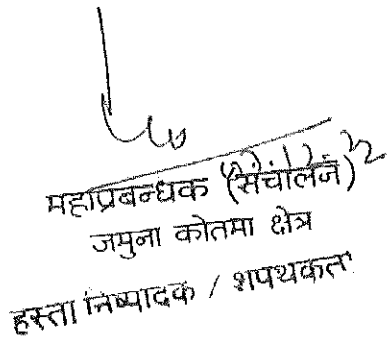 महाप्रबन्धक (संचालन)
जमुना कोतमा क्षेत्र
हस्ता निष्पादक / शपथकर्ता